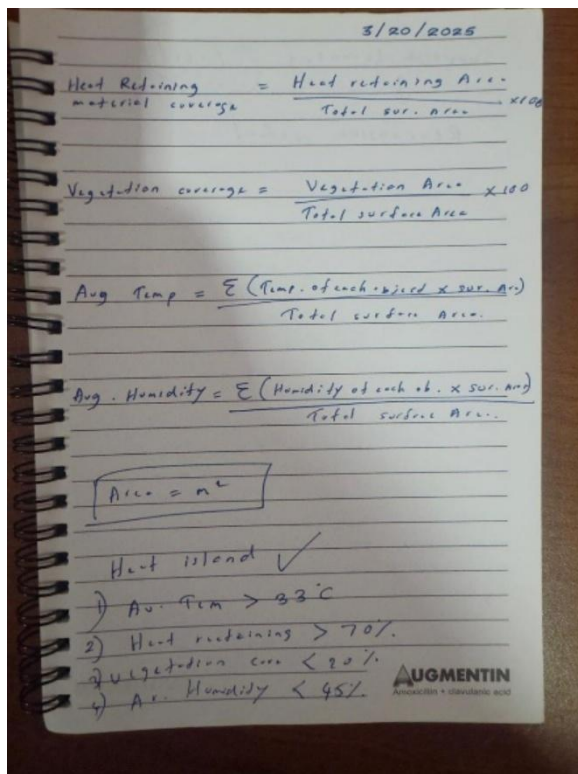 3/20/2025
Heat Retaining = Heat retaining Area
material coverage Total sur. Area x100
Vegetation coverage = Vegetation Area x 100
Total surface Area
Avg Temp = Σ (Temp. of each object x sur. Are)
Total surface Area.
Avg. Humidity = Σ (Humidity of each ob. x sur. Area)
Total surface Area.
Area = m²
Heat island ✓
1) Av. Tem > 33°C
2) Heat reetaining > 70%.
3) Vegetation cove < 20%.
4) Av. Humidity < 45%.
AUGMENTIN
Amoxicillin • clavulanic acid